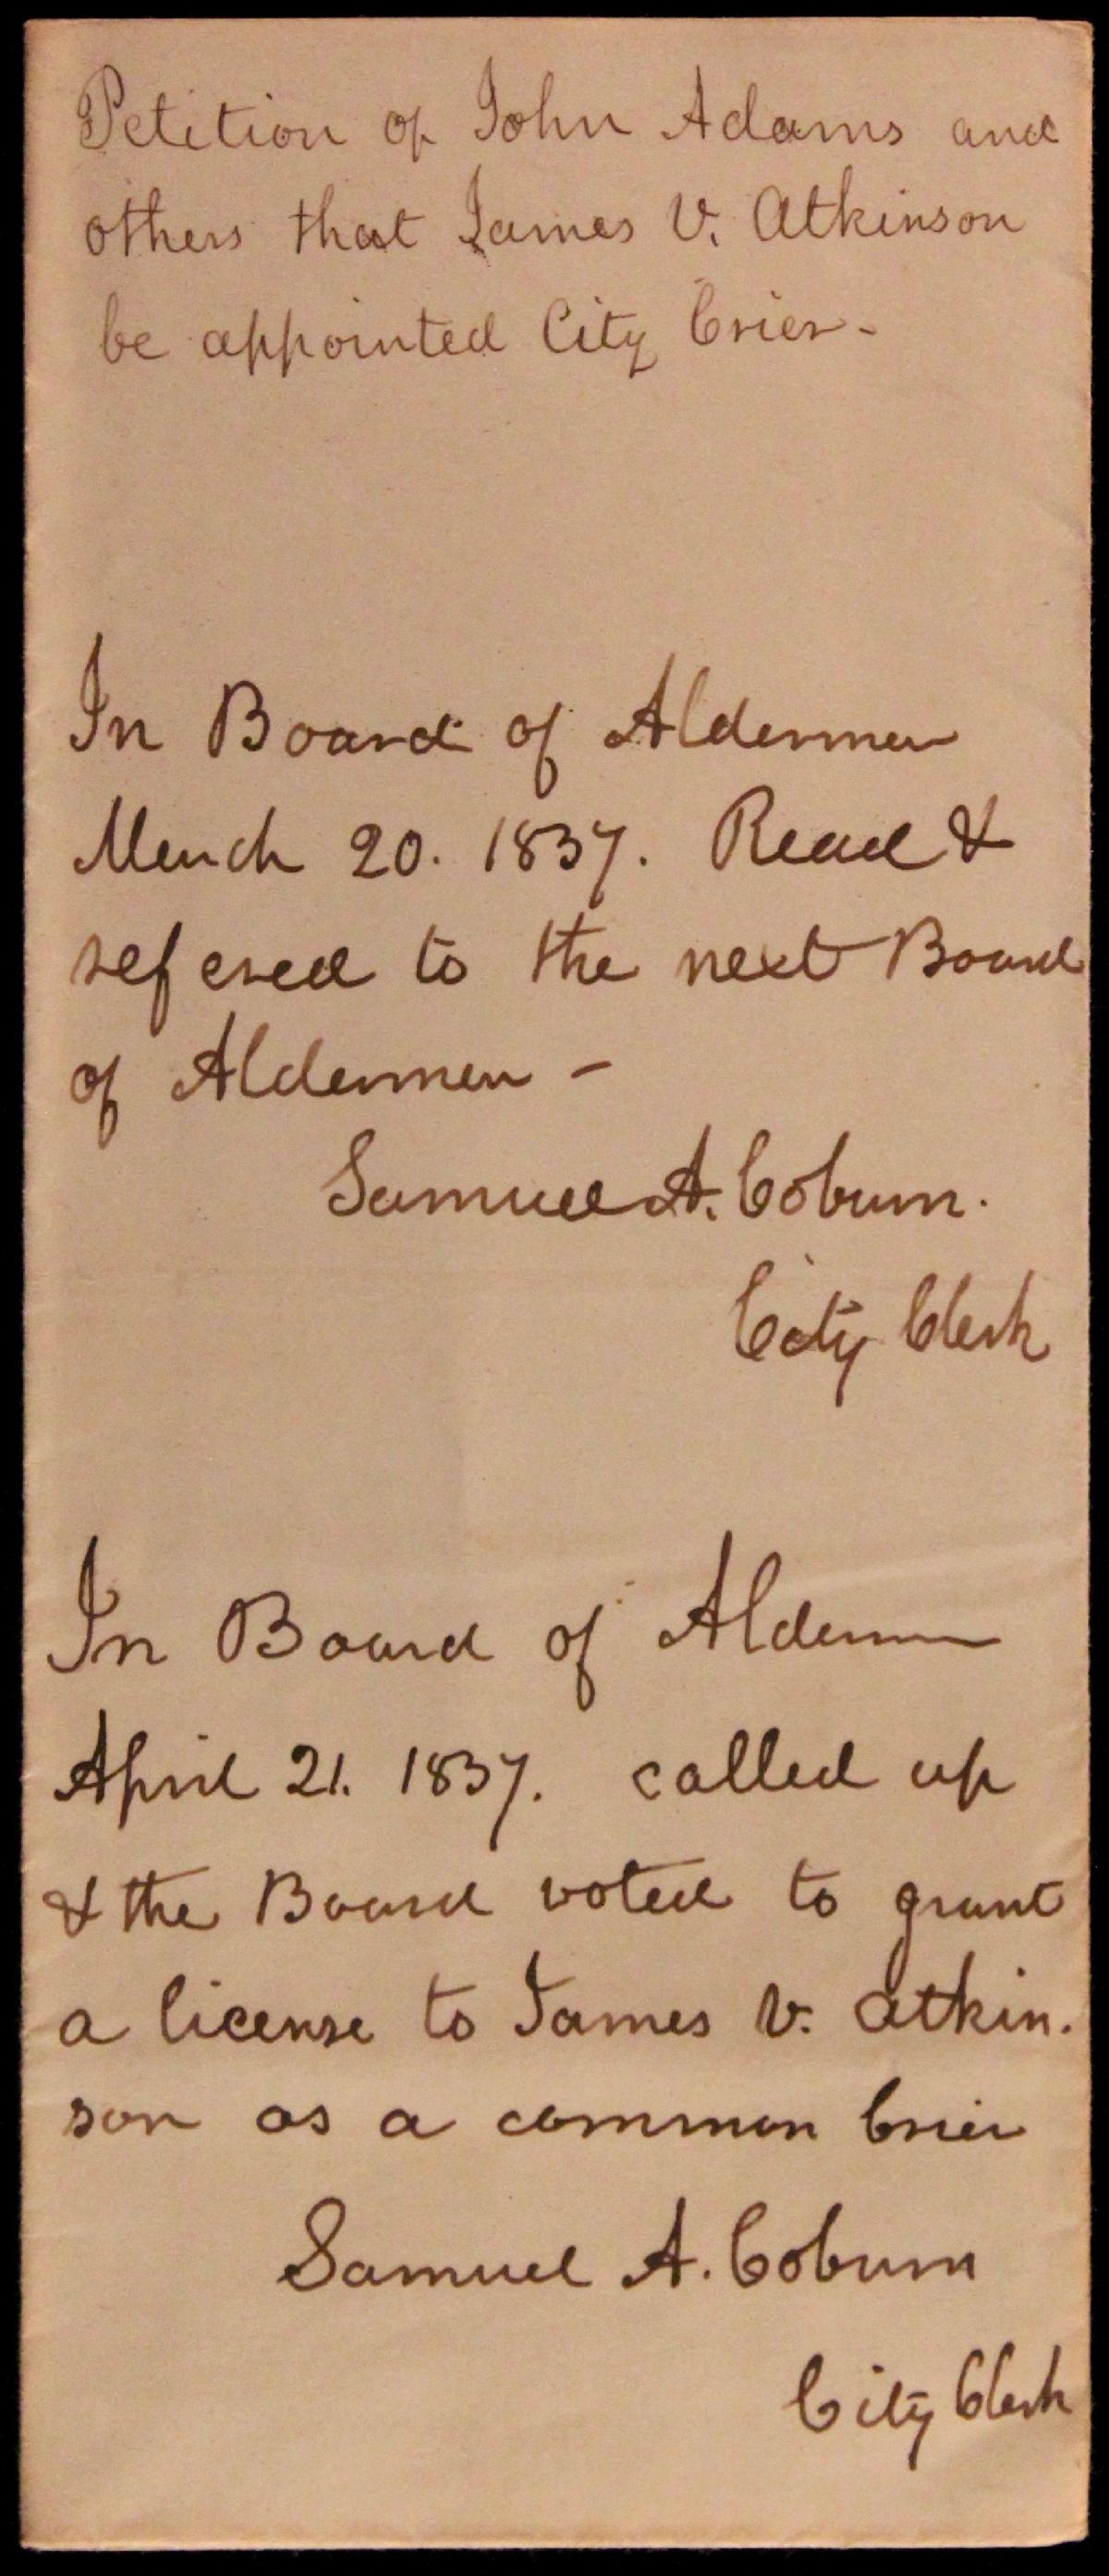 Petition of John Adams and
others that James V. Atkinson
be appointed City Crier -
In Board of Aldermen
March 20. 1837. Read &
refered to the next Board
of Aldermen -
Samuel A. Coburn.
City Clerk
In Board of Aldermen
April 21. 1837. called up
& the Board voted to grant
a license to James V. Atkin.
son as a common Crier
Samuel A. Coburn
City Clerk